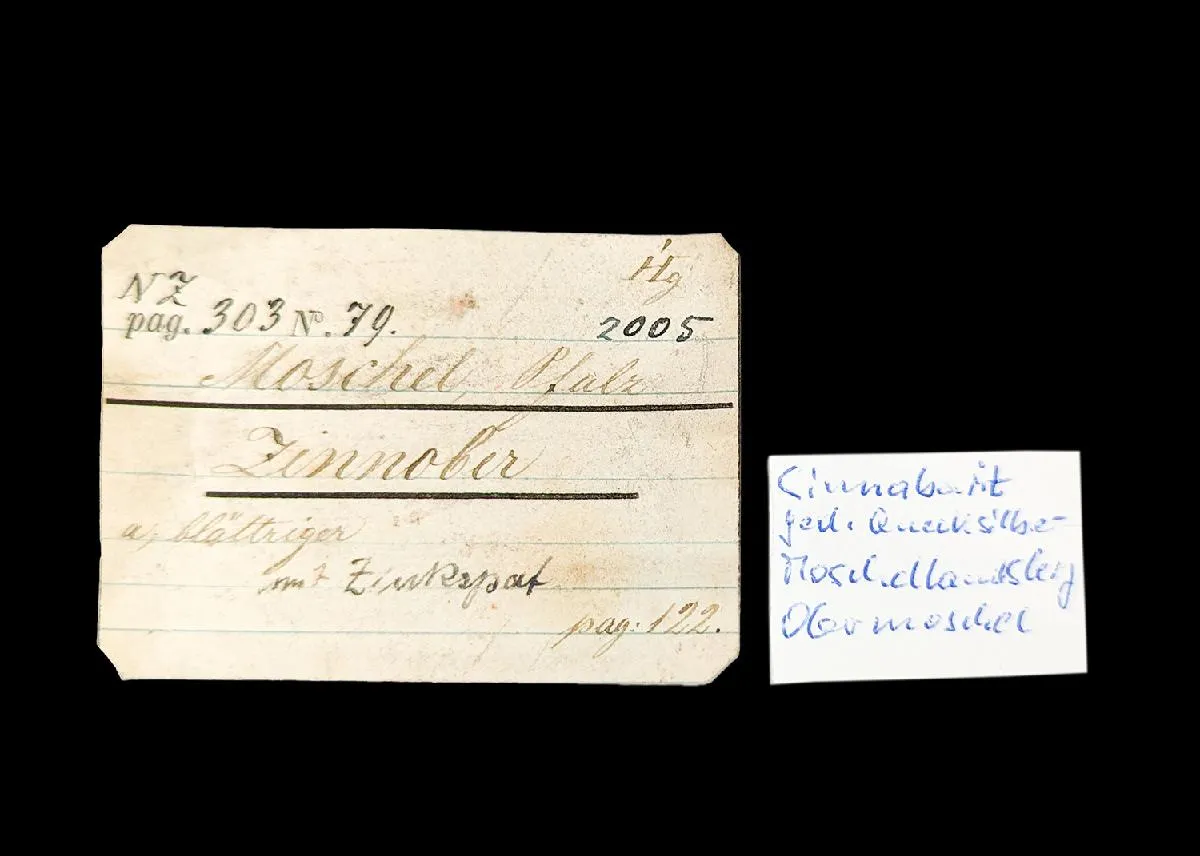 Hg
NZ
pag. 303 No. 79. 2005
Moschel, Pfalz
Zinnober
a, blättriger
mit Zinkspat
pag. 122.
Cinnabarit
ged. Quecksilber
Moschellandsberg
Obermoschel